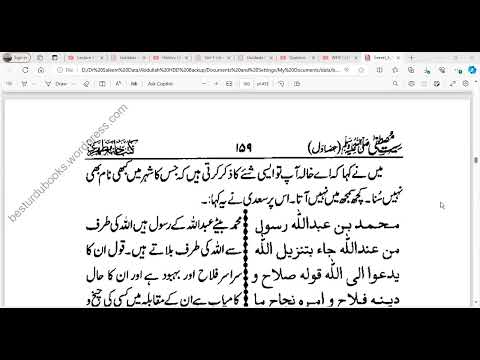 Sign in
D:/Dr%20Saleem%20Data/Abdullah%20HDD%20Backup/Documents%20and%20Settings/My%20Documents/data/b...
Ask Copilot
besturdubooks.wordpress.com
سیرت مصطفیٰ ﷺ (حصہ اوّل)
۱۵۹
میں نے کہا کہ اے خالہ آپ تو ایسی شئے کا ذکر کرتی ہیں کہ جس کا شہر میں کبھی نام بھی
نہیں سُنا۔ کچھ سمجھ میں نہیں آتا۔ اس پر سعدیٰ نے یہ کہا:۔
محمد بن عبدالله رسول
من عندالله جاء بتنزيل الله
يدعوا الى الله قوله صلاح و
دينه فلاح و امره نجاح ما
محمد بیٹے عبداللہ کے رسول ہیں اللہ کی طرف
سے اللہ کی طرف بلاتے ہیں۔ قول ان کا
سراسر فلاح اور بہبود ہے اور ان کا حال
کامیاب ہے ان کے مقابلہ میں کسی کی چیخ و